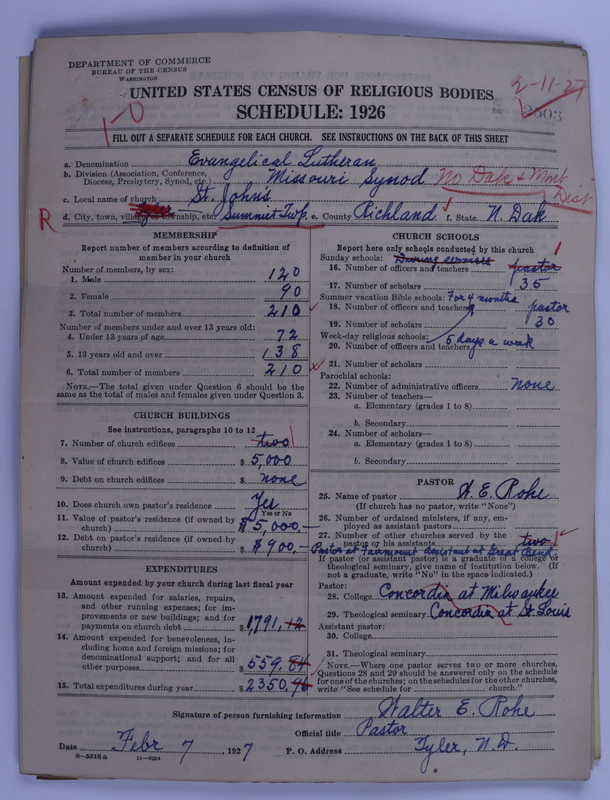 DEPARTMENT OF COMMERCE
BUREAU OF THE CENSUS
WASHINGTON
2-11-27
2503
UNITED STATES CENSUS OF RELIGIOUS BODIES
SCHEDULE: 1926
1-0
FILL OUT A SEPARATE SCHEDULE FOR EACH CHURCH. SEE INSTRUCTIONS ON THE BACK OF THIS SHEET
a. Denomination Evangelical Lutheran
b. Division (Association, Conference, Diocese, Presbytery, Synod, etc.) Missouri Synod No Dak & Mont Dist
c. Local name of church St. John's
R d. City, town, village, township, etc. Tyler Summit Twp. e. County Richland f. State N. Dak
MEMBERSHIP
Report number of members according to definition of
member in your church
Number of members, by sex:
1. Male 120
2. Female 90
3. Total number of members 210
Number of members under and over 13 years old:
4. Under 13 years of age 72
5. 13 years old and over 138
6. Total number of members 210
NOTE.—The total given under Question 6 should be
same as the total of males and females given under Question 3.
CHURCH BUILDINGS
See instructions, paragraphs 10 to 12
7. Number of church edifices two 1
8. Value of church edifices $ 5,000
9. Debt on church edifices $ none
10. Does church own pastor's residence Yes
Yes or No
11. Value of pastor's residence (if owned by
church) $ 5,000.—
12. Debt on pastor's residence (if owned by
church) $ 900.—
EXPENDITURES
Amount expended by your church during last fiscal year
13. Amount expended for salaries, repairs,
and other running expenses; for im-
provements or new buildings; and for
payments on church debt $ 1,791.12
14. Amount expended for benevolences, in-
cluding home and foreign missions; for
denominational support; and for all
other purposes $ 559.84
15. Total expenditures during year $ 2350.96
CHURCH SCHOOLS
Report here only schools conducted by this church
Sunday schools: During services 1
16. Number of officers and teachers pastor
17. Number of scholars 35
Summer vacation Bible schools: For 4 months
18. Number of officers and teachers pastor
19. Number of scholars 30
Week-day religious schools: 5 days a week
20. Number of officers and teachers
21. Number of scholars
Parochial schools:
22. Number of administrative officers none
23. Number of teachers—
a. Elementary (grades 1 to 8)
b. Secondary
24. Number of scholars—
a. Elementary (grades 1 to 8)
b. Secondary
PASTOR
25. Name of pastor W. E. Rohe
(If church has no pastor, write "None")
26. Number of ordained ministers, if any, em-
ployed as assistant pastors
27. Number of other churches served by the
pastor or his assistants two 1
Pastor at Fairmount Assistant at Great Bend
If pastor (or assistant pastor) is a graduate of a college or
theological seminary, give name of institution below. (If
not a graduate, write "No" in the space indicated.)
Pastor:
28. College Concordia at Milwaukee
29. Theological seminary Concordia at St Louis
Assistant pastor:
30. College
31. Theological seminary
NOTE.—Where one pastor serves two or more churches,
Questions 28 and 29 should be answered only on the schedule
for one of the churches; on the schedules for the other churches,
write "See schedule for church."
Signature of person furnishing information Walter E. Rohe
Official title Pastor
Date Febr 7, 1927 P. O. Address Tyler, N.D.
6—5518a 11—9024